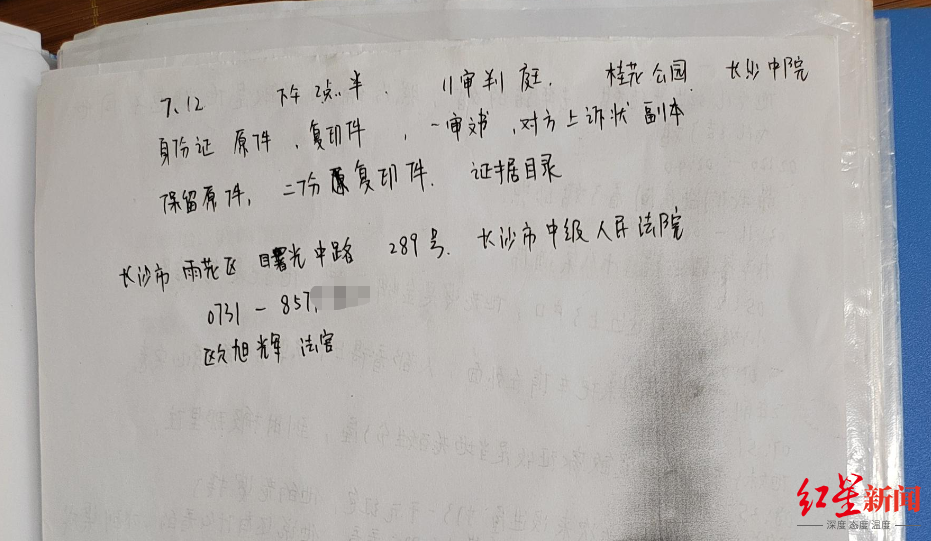 7.12 下午2点半. 11审判庭. 桂花公园 长沙中院
身份证原件、复印件, 一审文书, 对方上诉状副本
保留原件, 二份复印件. 证据目录
长沙市雨花区曙光中路 289号. 长沙市中级人民法院
0731-857
欧旭辉 法官
红星新闻
深度 态度 温度